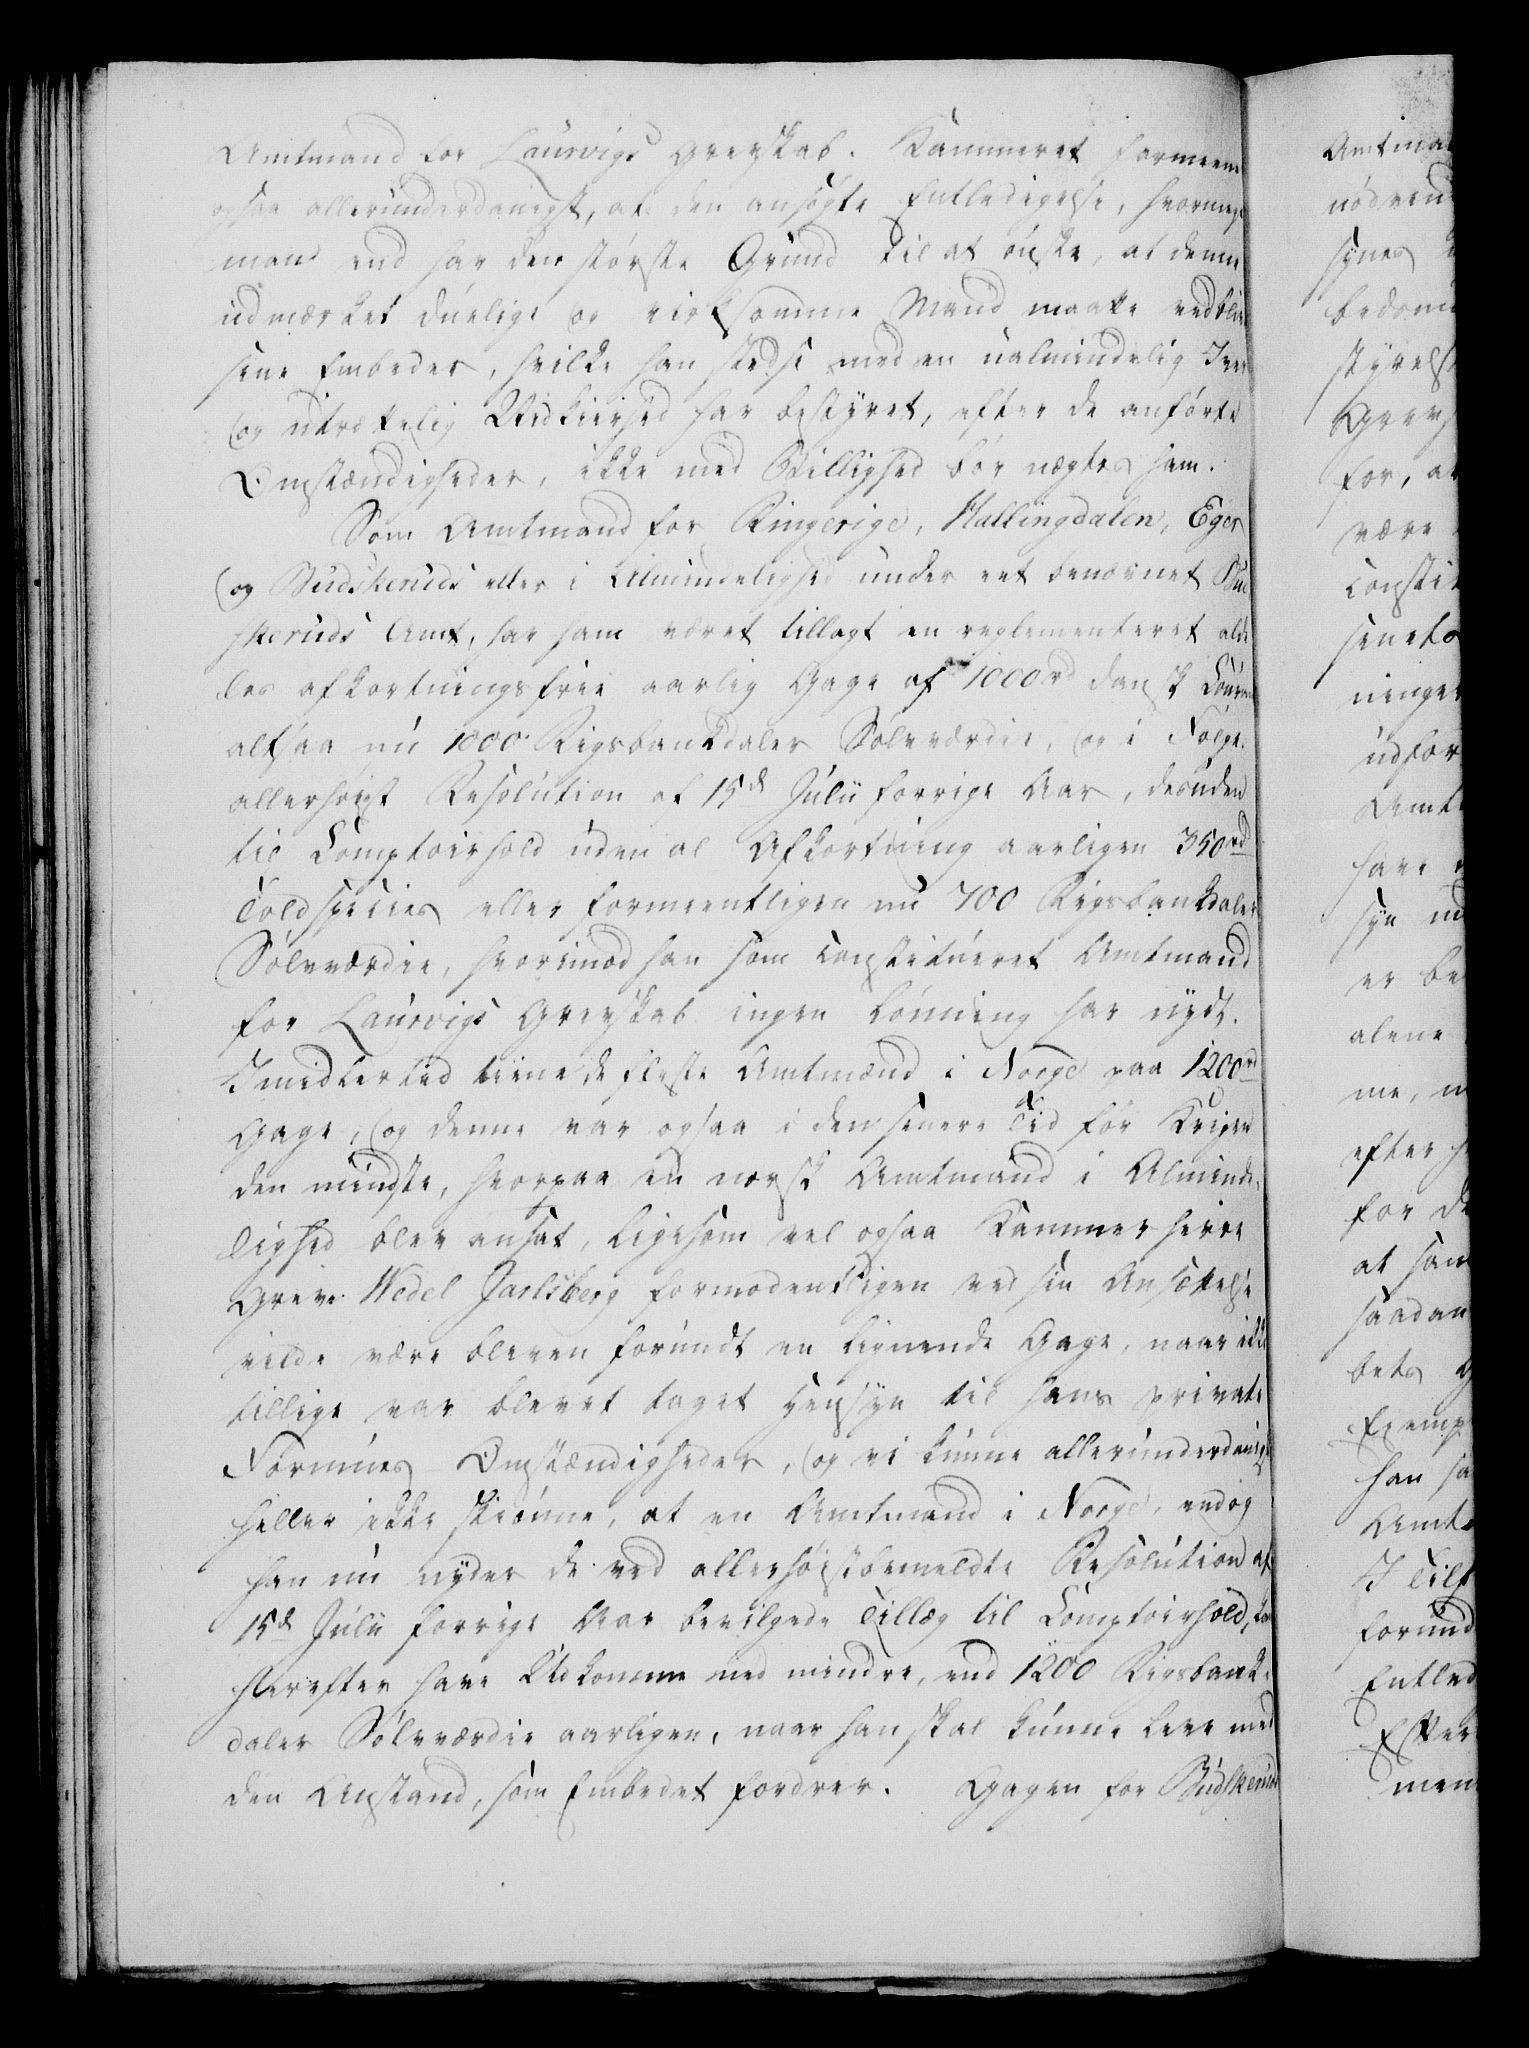 Amtmand for Laurvigs Grevskab. Kammeret formeene
ogsaa allerunderdanigst, at den ansøgte Entledigelse, hvormeget
man end har den største Grund til at ønske, at denne
udmærket duelige og virksomme Mand maatte vedblive
sine Embeder, hvilke han stedse med en ualmindelig Iver
og utrættelig Vidkierhed har bestyret, efter de anførte
Omstændigheder, ikke med Billighed bør nægtes ham.
Som Amtmand for Ringerige, Hallingdalen, Eger
og Budskeruds eller i Almindelighed under eet benævnet Bud
skeruds Amt, har ham været tillagt en reglementeret alde
les afkortningsfrie aarlig Gage af 1000rd dansk Courant
altsaa nu 1000 Rigsbankdaler Sølvværdie, og i Følge
allerhøigst Resolution af 15d Julii forrige Aar, desuden
til Comptoirhold uden al Afkortning aarligen 350rd
Toldspecies eller formeentligen nu 700 Rigsbankdaler
Sølvværdie, hvorimod han som constitueret Amtmand
for Laurvigs Grevskab ingen Lønning har nydt.
Imidlertid tiene de fleste Amtmænd i Norge paa 1200rd
Gage, og denne var ogsaa i den senere Tid før Krigen
den mindste, hvorpaa en norsk Amtmand i Alminde-
lighed blev ansat, ligesom vel ogsaa Kammerherre
Greve Wedel Jarlsberg formodentligen ved sin Ansættelse
vilde være bleven forundt en lignende Gage, naar ikke
tillige var blevet taget Hensyn til hans private
Formues-Omstændigheder, og vi kunne allerunderdanigst
heller ikke skiønne, at en Amtmand i Norge, endog
han nu nyder de ved allerhøistbemeldte Resolution af
15d Julii forrige Aar bevilgede Tillæg til Comptoirhold, kan
herefter have Udkomme med mindre, end 1200 Rigsbank-
daler Sølvværdie aarligen, naar han skal kunne leve med
den Anstand, som Embedet fordrer. Gagen for Budskeruds
Amtma
nødvend
synes
bedømm
styrels
Grevs
for, at
være
constit
senets
ninger
udfor
Amt
have
syn
er be
alene
me, m
efter h
for de
at han
saadan
bets G
Exemp
han ha
Amt
I Tilf
forund
Entled
Efter
men